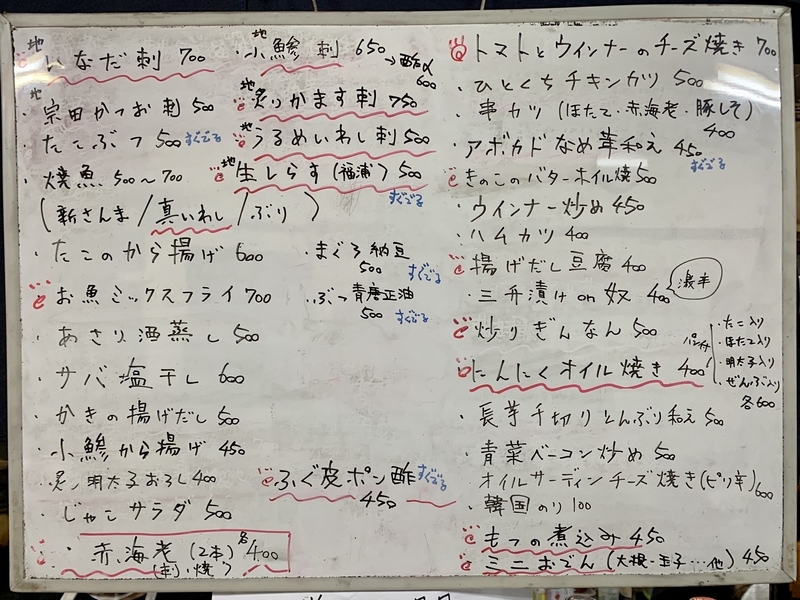 地 いなだ刺 700
地 宗田かつお刺 500
・たこぶつ 500 すぐでる
・焼魚 500〜700
(新さんま/真いわし/ぶり)
・たこのから揚げ 600
お魚ミックスフライ 700
・あさり酒蒸し 500
・サバ塩干し 600
・かきの揚げだし 500
・小鯵から揚げ 450
・炙り明太子おろし 400
・じゃこサラダ 500
・赤海老(2本)各400
(刺・焼)
地
・小鯵刺 650
→酢〆 600
地 炙りかます刺 750
地 うるめいわし刺 500
地 生しらす(福浦) 500
すぐでる
・まぐろ納豆
500 すぐでる
・ぶつ青唐正油
500 すぐでる
ふぐ皮ポン酢 すぐでる
450
トマトとウインナーのチーズ焼き 700
・ひとくちチキンカツ 500
・串カツ(ほたて・赤海老・豚しそ)
400
・アボカドなめ茸和え 450
すぐでる
きのこのバターホイル焼 500
・ウインナー炒め 450
・ハムカツ 400
揚げだし豆腐 400
・三升漬け on 奴 400 激辛
炒りぎんなん 500
にんにくオイル焼き 400
・たこ入り
・ほたて入り
・明太子入り
・ぜんぶ入り
各600
・長芋千切りとんぶり和え 500
・青菜ベーコン炒め 500
オイルサーディンチーズ焼き(ピリ辛) 600
・韓国のり 100
もつの煮込み 450
ミニおでん(大根・玉子…他) 450